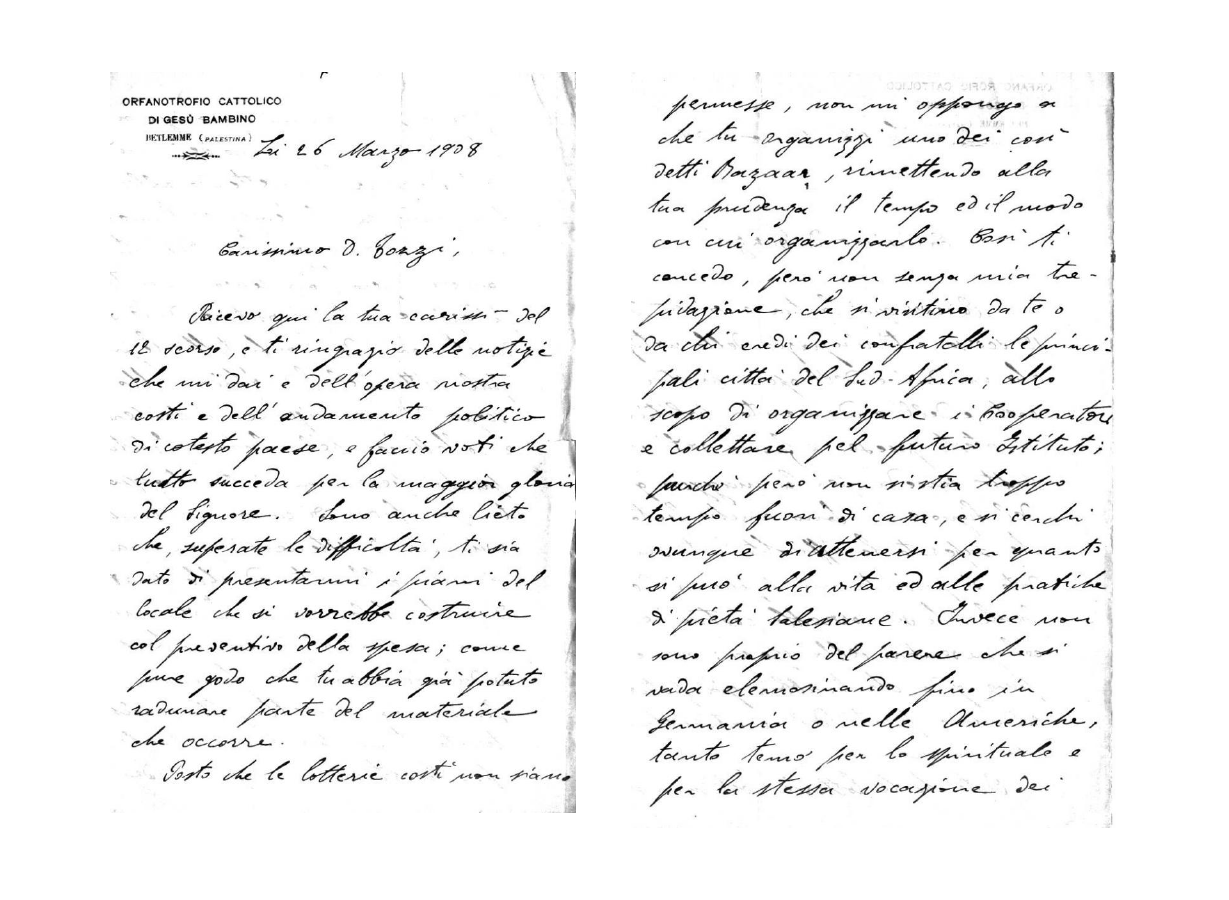 ORFANOTROFIO CATTOLICO
DI GESÙ BAMBINO
BETLEMME (PALESTINA)
Li 26 Marzo 1908
Carissimo D. Tozzi,
Ricevo qui la tua cariss- del
12 scorso, e ti ringrazio delle notizie
che mi dai e dell'opera nostra
costì e dell'andamento politico
di cotesto paese, e faccio voti che
tutto succeda per la maggior gloria
del Signore. Sono anche lieto
che, superate le difficoltà, ti sia
dato di presentarmi i piani del
locale che si vorrebbe costruire
col preventivo della spesa; come
pure godo che tu abbia già potuto
radunare parte del materiale
che occorre.
Posto che le lotterie costì non siano
permesse, non mi oppongo a
che tu organizzi uno dei così
detti Bazaar, rimettendo alla
tua prudenza il tempo ed il modo
con cui organizzarlo. Così ti
concedo, però non senza mia tre-
pidazione, che si visitino da te o
da chi credi dei confratelli le princi-
pali città del Sud-Africa, allo
scopo di organizzare i Cooperatori
e collettare pel futuro Istituto;
purchè però non si stia troppo
tempo fuori di casa, e si cerchi
ovunque di attenersi per quanto
si può alla vita ed alle pratiche
di pietà salesiane. Invece non
sono proprio del parere che si
vada elemosinando fino in
Germania o nelle Americhe,
tanto temo per lo spirituale e
per la stessa vocazione dei